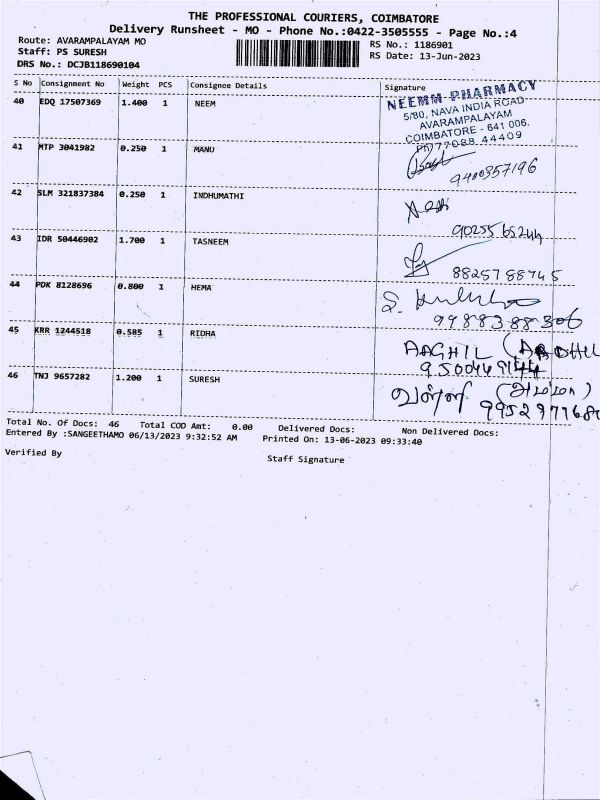 THE PROFESSIONAL COURIERS, COIMBATORE
Delivery Runsheet - MO - Phone No.:0422-3505555 - Page No.:4
Route: AVARAMPALAYAM MO
RS No.: 1186901
Staff: PS SURESH
RS Date: 13-Jun-2023
DRS No.: DCJB118690104
S No Consignment No Weight PCS Consignee Details Signature
40 EDQ 17507369 1.400 1 NEEM
NEEMM PHARMACY
5/80, NAVA INDIA ROAD
AVARAMPALAYAM
COIMBATORE - 641 006.
Ph) 77088 44409
41 MTP 3041982 0.250 1 MANU
9400357196
42 SLM 321837384 0.250 1 INDHUMATHI
9025565244
43 IDR 50446902 1.700 1 TASNEEM
8825788745
44 PDK 8128696 0.800 1 HEMA
9988388306
45 KRR 1244518 0.585 1 RIDHA
AAGHIL
9500469144
46 TNJ 9657282 1.200 1 SURESH
வள்ளி (அம்மா)
Total No. Of Docs: 46 Total COD Amt: 0.00 Delivered Docs: Non Delivered Docs:
Entered By :SANGEETHAMO 06/13/2023 9:32:52 AM Printed On: 13-06-2023 09:33:40
Verified By
Staff Signature